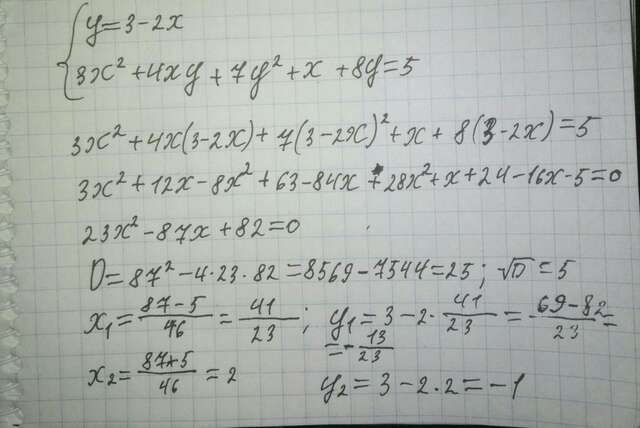 y=3-2x
3x²+4xy+7y²+x+8y=5
3x²+4x(3-2x)+7(3-2x)²+x+8(3-2x)=5
3x²+12x-8x²+63-84x+28x²+x+24-16x-5=0
23x²-87x+82=0
D=87²-4·23·82=8569-7544=25; √D=5
x₁=(87-5)/46=41/23; y₁=3-2·41/23=(69-82)/23=
=-13/23
x₂=(87+5)/46=2 y₂=3-2·2=-1